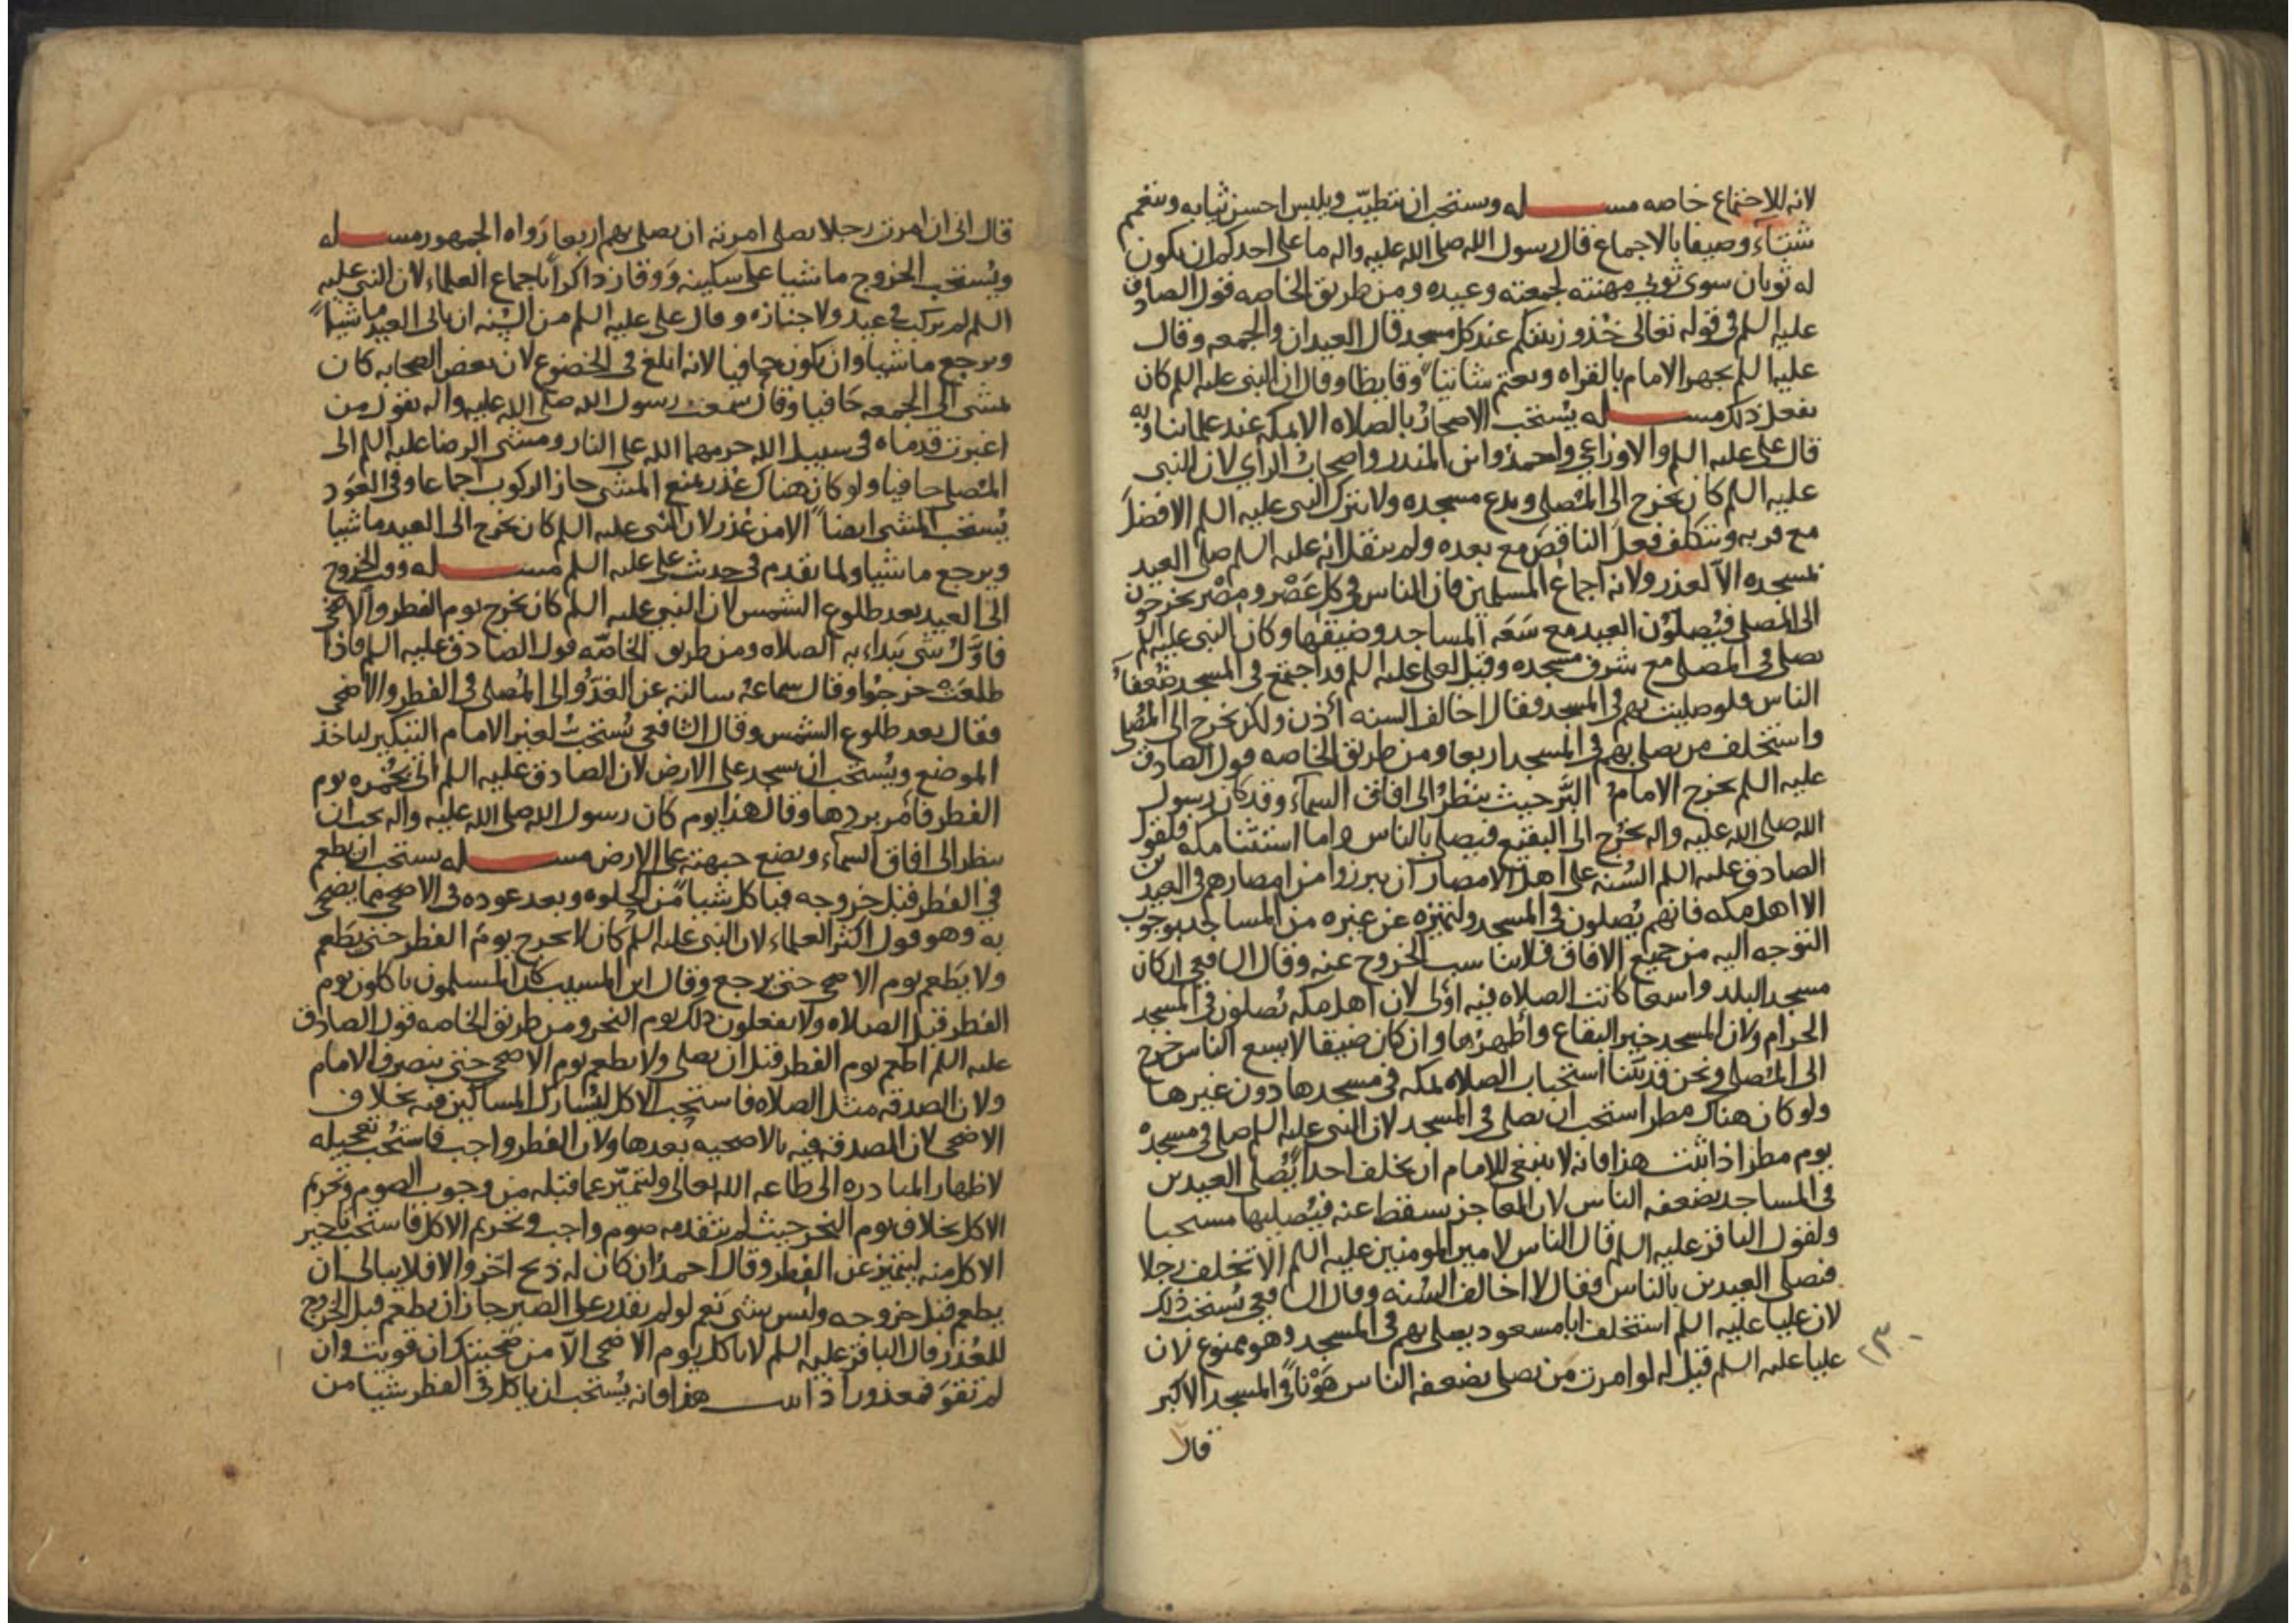 لانه للاجتماع خاصه مسله ويستحب ان يتطيب ويلبس احسن ثيابه ويتعمم
شتاء وصيفا بالاجماع قال رسول الله صلى الله عليه واله ما على احدكم ان يكون
له ثوبان سوى ثوبي مهنته لجمعته وعيده ومن طريق الخاصه قول الصادق
عليه السلم في قوله تعالى خذوا زينتكم عند كل مسجد قال العيدان والجمعه وقال
عليه السلم يجهر الامام بالقراه ويعتم شاتيا وقايظا وقال ان النبي عليه السلم كان
يفعل ذلك مسله يستحب الاصحار بالصلاه الا بمكه عند علمائنا وبه
قال علي عليه السلم والاوزاعي واحمد وابن المنذر واصحاب الراي لان النبي
عليه السلم كان يخرج الى المصلى ويدع مسجده ولا يترك النبي عليه السلم الافضل
مع قربه ويتكلف فعل الناقص مع بعده ولم ينقل انه عليه السلم صلى العيد
بمسجده الا لعذر ولانه اجماع المسلمين فان الناس في كل عصر ومصر يخرجون
الى المصلى فيصلون العيد مع سعه المساجد وضيقها وكان النبي عليه السلم
يصلي في المصلى مع شرف مسجده وقيل لعلي عليه السلم قد اجتمع في المسجد ضعفاء
الناس فلو صليت بهم في المسجد فقال اخالف السنه اذن ولكن نخرج الى المصلى
واستخلف من يصلي بهم في المسجد اربعا ومن طريق الخاصه قول الصادق
عليه السلم يخرج الامام البر حيث ينظر الى افاق السماء وقد كان رسول
الله صلى الله عليه واله يخرج الى البقيع فيصلي بالناس واما استثنا مكه فلقول
الصادق عليه السلم السنه على اهل الامصار ان يبرزوا من امصارهم في العيدين
الا اهل مكه فانهم يصلون في المسجد ولتميزه عن غيره من المساجد بوجوب
التوجه اليه من جميع الافاق فلا يناسب الخروج عنه وقال الشافعي ان كان
مسجد البلد واسعا كانت الصلاه فيه اولى لان اهل مكه يصلون في المسجد
الحرام ولان المسجد خير البقاع واطهرها وان كان ضيقا لا يسع الناس خرج
الى المصلى ونحن قد بينا استحباب الصلاه بمكه في مسجدها دون غيرها
ولو كان هناك مطر استحب ان يصلى في المسجد لان النبي عليه السلم صلى في مسجده
يوم مطر اذا ثبت هذا فانه لا ينبغي للامام ان يخلف احدا يصلي العيدين
في المساجد بضعفه الناس لان العاجز يسقط عنه فيصليها مستحبا
ولقول الباقر عليه السلم قال الناس لامير المومنين عليه السلم الا تخلف رجلا
فصلى العيدين بالناس فقال لا اخالف السنه وقال الشافعي يستحب ذلك
لان عليا عليه السلم استخلف ابا مسعود يصلي بهم في المسجد وهو ممنوع لان
عليا عليه السلم قيل له لو امرت من يصلي بضعفه الناس هونا في المسجد الاكبر
قال
قال اني ان امرت رجلا يصلي امرته ان يصلي بهم اربعا رواه الجمهور مسله
ويستحب الخروج ماشيا على سكينه ووقار ذاكرا باجماع العلماء لان النبي عليه
السلم لم يركب في عيد ولا جنازه وقال علي عليه السلم من السنه ان ياتي العيد ماشيا
ويرجع ماشيا وان يكون حافيا لانه ابلغ في الخضوع لان بعض الصحابه كان
يمشي الى الجمعه حافيا وقال سمعت رسول الله صلى الله عليه واله يقول من
اغبرت قدماه في سبيل الله حرمهما الله على النار ومشى الرضا عليه السلم الى
المصلى حافيا ولو كان هناك عذر يمنع المشي جاز الركوب اجماعا وفي العود
يستحب المشي ايضا الا من عذر لان النبي عليه السلم كان يخرج الى العيد ماشيا
ويرجع ماشيا ولما تقدم في حديث علي عليه السلم مسله ووقت الخروج
الى العيد بعد طلوع الشمس لان النبي عليه السلم كان يخرج يوم الفطر والاضحى
فاول شي يبداء به الصلاه ومن طريق الخاصه قول الصادق عليه السلم فاذا
طلعت خرجوا وقال سماعه سالته عن الغدو الى المصلى في الفطر والاضحى
فقال بعد طلوع الشمس وقال الشافعي يستحب لغير الامام التبكير لياخذ
الموضع ويستحب ان يسجد على الارض لان الصادق عليه السلم اتى بخمره يوم
الفطر فامر بردها وقال هذا يوم كان رسول الله صلى الله عليه واله يحب ان
ينظر الى افاق السماء ويضع جبهته على الارض مسله يستحب ان يطعم
في الفطر قبل خروجه فياكل شيا من الحلوه وبعد عوده في الاضحى مما يضحي
به وهو قول اكثر العلماء لان النبي عليه السلم كان لا يخرج يوم الفطر حتى يطعم
ولا يطعم يوم الاضحى حتى يرجع وقال ابن المسيب كان المسلمون ياكلون يوم
الفطر قبل الصلاه ولا يفعلون ذلك يوم النحر ومن طريق الخاصه قول الصادق
عليه السلم اطعم يوم الفطر قبل ان يصلي ولا يطعم يوم الاضحى حتى ينصرف الامام
ولان الصدقه مثل الصلاه فاستحب الاكل ليشارك المساكين فيه بخلاف
الاضحى لان الصدقه فيه بالاضحيه بعدها ولان الفطر واجب فاستحب تعجيله
لاظهار المبادره الى طاعه الله تعالى ولتميز عما قبله من وجوب الصوم وتحريم
الاكل بخلاف يوم النحر حيث لم يتقدمه صوم واجب وتحريم الاكل فاستحب تاخير
الاكل منه ليتميز عن الفطر وقال احمد ان كان له ذبح اخر والا فلا يبالي ان
يطعم قبل خروجه وليس بشي نعم لو لم يقدر على الصبر جاز ان يطعم قبل الخروج
للعذر قال الباقر عليه السلم لا ياكل يوم الاضحى الا من ضحيتك ان قويت وان
لم تقو فمعذور اذا ثبت هذا فانه يستحب ان ياكل في الفطر شيا من